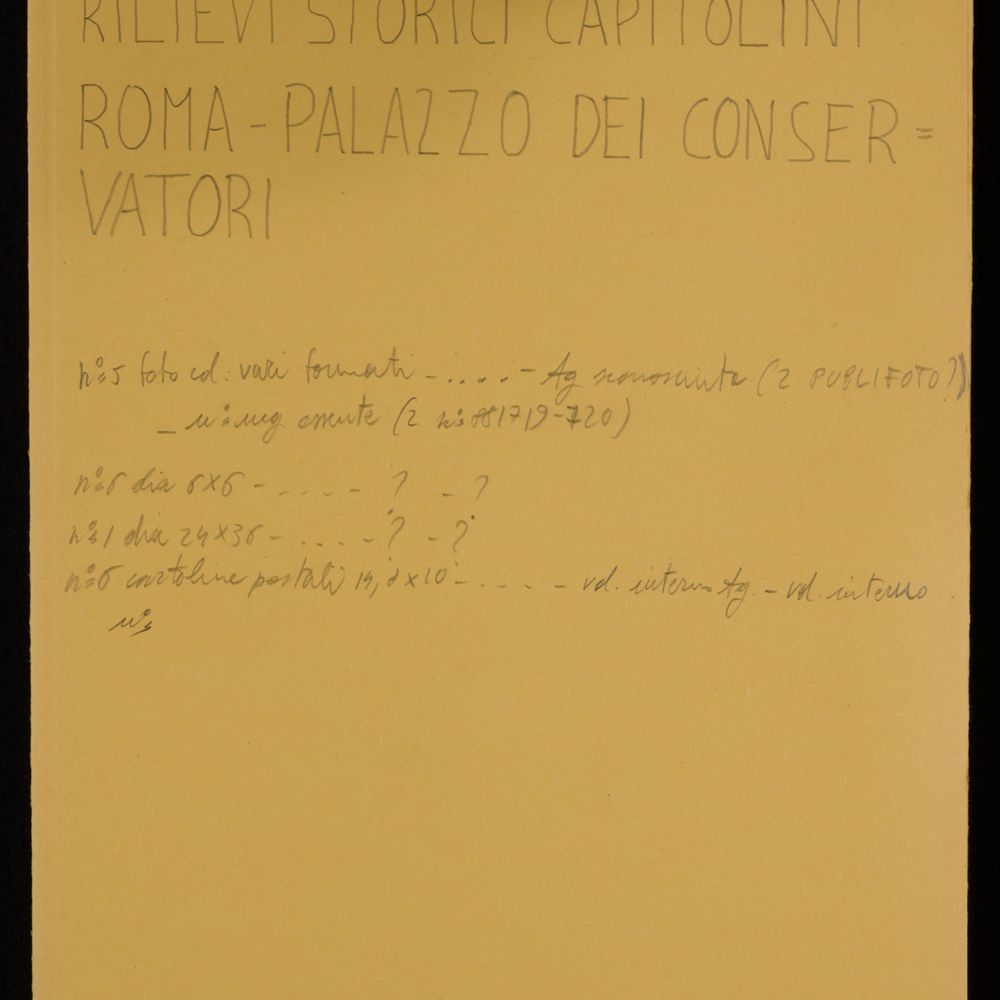 RILIEVI STORICI CAPITOLINI
ROMA - PALAZZO DEI CONSER =
VATORI
n° 5 foto col. vari formati - .... - Ag sconosciuta (2 PUBLIFOTO?)
- n° neg assente (2 n° 881719-720)
n° 6 dia 6x6 - .... - ? - ?
n° 1 dia 24x36 - .... - ? - ?
n° 6 cartoline postali 14,8x10 - .... - vd. interno Ag. - vd. interno
n°